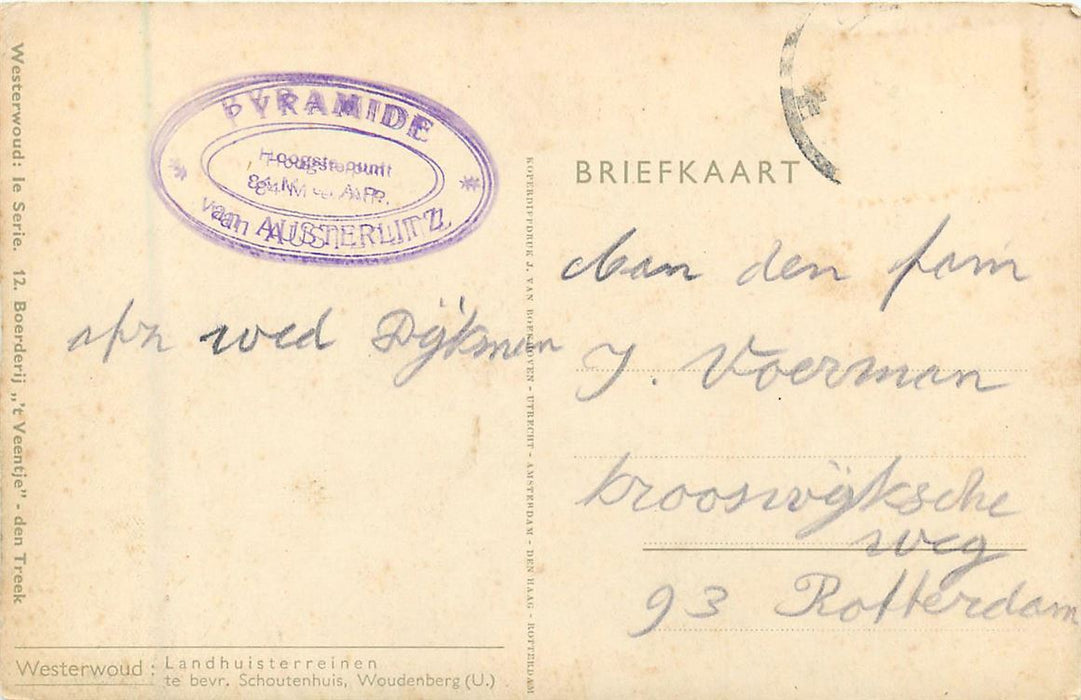 Westerwoud: Ie Serie. 12. Boerderij „'t Veentje" - den Treek
PYRAMIDE
Hoogste punt
van AUSTERLITZ
afz wed Dijkman
Westerwoud: Landhuisterreinen
te bevr. Schoutenhuis, Woudenberg (U.)
KOPERDIEPDRUK J. VAN BOEKHOVEN - UTRECHT - AMSTERDAM - DEN HAAG - ROTTERDAM
BRIEFKAART
Aan den fam
J. Voerman
krooswijksche
weg
93 Rotterdam